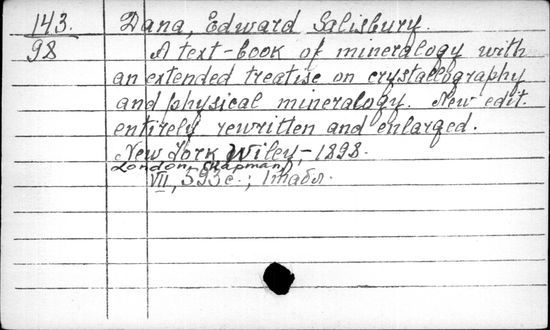 143. Dana, Edward Salisbury.
98 A text-book of mineralogy with
an extended treatise on crystallography
and physical mineralogy. New edit.
entirely rewritten and enlarged.
New York Wiley, - 1898.
London, Chapman,
VII, 593 с.; 1 табл.